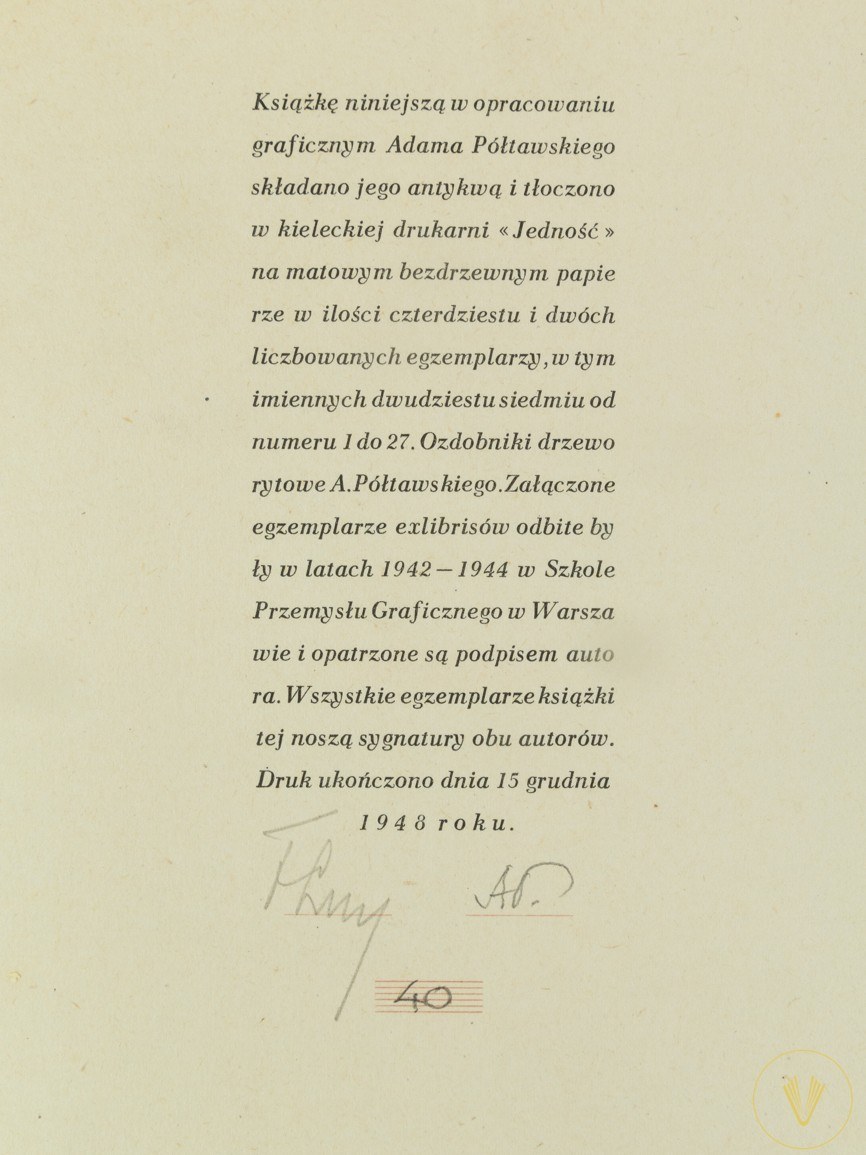 Książkę niniejszą w opracowaniu
graficznym Adama Półtawskiego
składano jego antykwą i tłoczono
w kieleckiej drukarni «Jedność»
na matowym bezdrzewnym papie
rze w ilości czterdziestu i dwóch
liczbowanych egzemplarzy, w tym
imiennych dwudziestu siedmiu od
numeru 1 do 27. Ozdobniki drzewo
rytowe A. Półtawskiego. Załączone
egzemplarze exlibrisów odbite by
ły w latach 1942 — 1944 w Szkole
Przemysłu Graficznego w Warsza
wie i opatrzone są podpisem auto
ra. Wszystkie egzemplarze książki
tej noszą sygnatury obu autorów.
Druk ukończono dnia 15 grudnia
1948 roku.
AP.
40